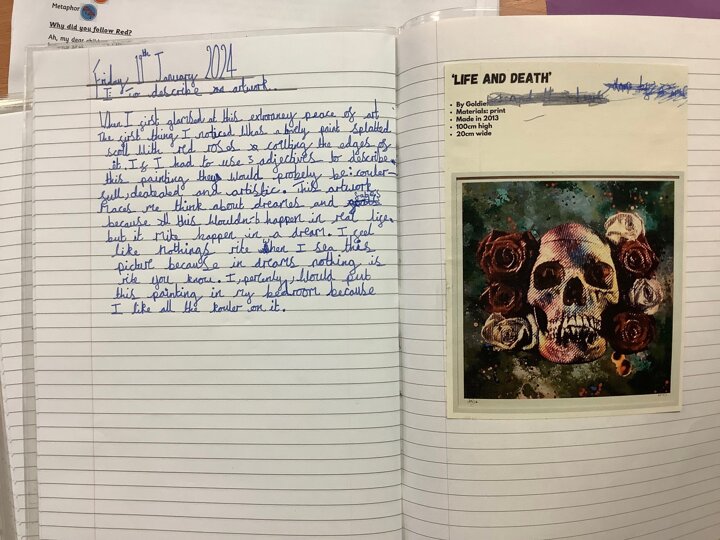 Metaphor
Why did you follow Red?
Ah, my dear
Friday 19th January 2024
LI To describe an artwork.
When I first glansed at this extrorney peace of art
the first thing I noticed Was a body paint splated
scoll With red roses coiling the edges of
it. If I had to use 3 adjectives to describe
this painting they Would probely be: couler-
full, deateated and artistic. This artwork
Maces me think about dreames and
because all this Wouldn't happen in real life
but it mite happen in a dream. I feel
like nothings rite When I sea this
picture because in dreams nothing is
rite you know. I, persenly, Would put
this painting in my bedroom because
I like all the kouler on it.
'LIFE AND DEATH'
• By Goldie
• Materials: print
• Made in 2013
• 100cm high
• 20cm wide